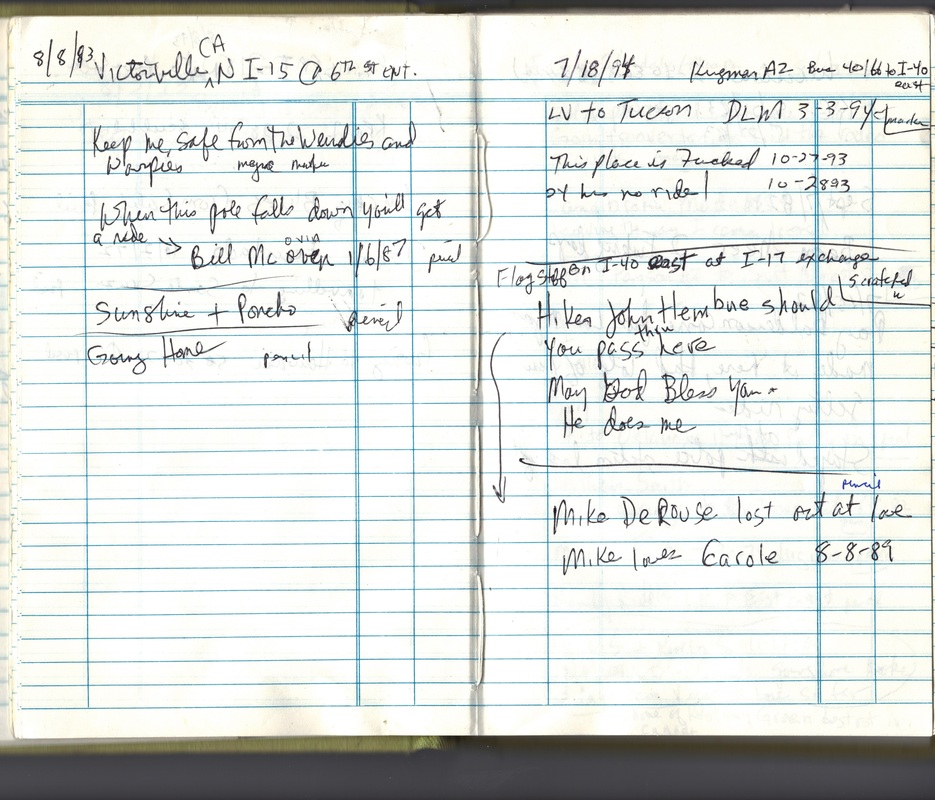 8/8/93 Victorville, CA N I-15 @ 6th St ENT.
Keep me safe from The Weirdies and
Warpies magic marker
When this pole falls down you'll get
a ride
Bill Mc oven 1/6/87 pencil
Sunshine + Poncho pencil
Going Home pencil
7/18/94 Kingman AZ Bus 40/66 to I-40
east
LV to Tucson DLM 3-3-94 marker
This place is Fucked 10-27-93
has no ride! 10-2893
Flagstaff on I-40 east at I-17 exchange
Scratched
in
Hiker John Hembue should
You pass thru here
May God Bless You
He does me
pencil
Mike DeRouse lost out at love
Mike loves Carole 8-8-89